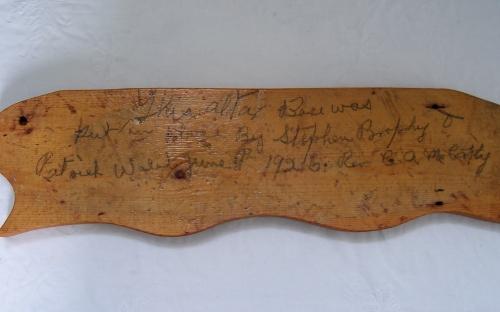 This altar Base was
Put in Place By Stephen Brophy &
Patrick Walsh June 9th 1926. Rev C. A. McCarthy